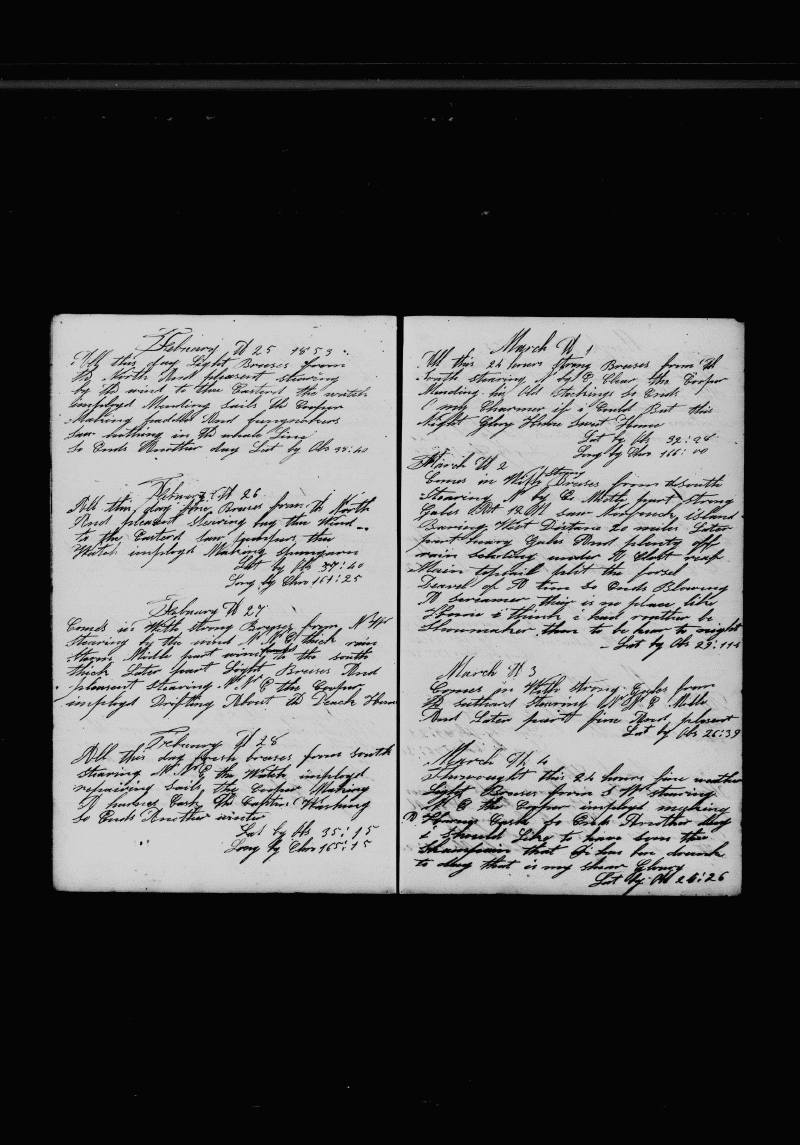 February th 25 1853
All this day Light Breses from
th North And pleasent stearing
by th wind to thee Eastard the watch
imployd Mending Sails th Cooper
Making paddles And
Saw nothing in th whole Time
So Ends Another day Lat by Obs 38:40
February th 26
All this day fine Breses from th North
And pleasent Stearing buy thee Wind
to the Eastard saw thee
Watch imployd Making Spunyarn
Lat by Obs 37:40
Long by Chro 164:25
February th 27
Comes in With strong Breses from N W
stearing by the wind N N E thick rain
storm Middle part wind to the south
thick Later part Light Breses And
pleasent stearing N N E the Cooper
imployd Drifting About th Deack
February th 28
All this day fresh breses from south
stearing N N E the Watch imployd
repairing Sails the Cooper Making
A Cask th Captin Washing
So Ends Another
Lat by Obs 35:15
Long by Chro 165:15
March th 1
All this 24 hours strong Breses from th
South stearing N by E Clear the Cooper
Mending his Old Stockings So Ends
my Charmer if i Could But this
Night Glory Home Sweet Home
Lat by Obs 32:28
Long by Chro 166:00
March th 2
Comes in With strong Breses from th South
Stearing N by E Midle part strong
Gales At 12 M saw island
Baring West Distance 20 miles Later
part heavy Gales And plenty off
rain under A Close reaf
Main topsail split the forsel
Deavel of A time So Ends Blowing
A screamer this is no place like
Home i think i had rather be
Shoumaker then to be hear to night
Lat by Obs 29:114
March th 3
Comes in With strong Gales from
th suthard stearing N N E Midle
And Later part fine And plesent
Lat by Obs 26:39
March th 4
Thorought this 24 hours fine weather
Light Breses from S W stearing
N E the Cooper imployd making
A Cask So Ends Another day
i should Like to have seen the
Shampain that has ben drunk
to day that is my
Lat by Obs 24:26